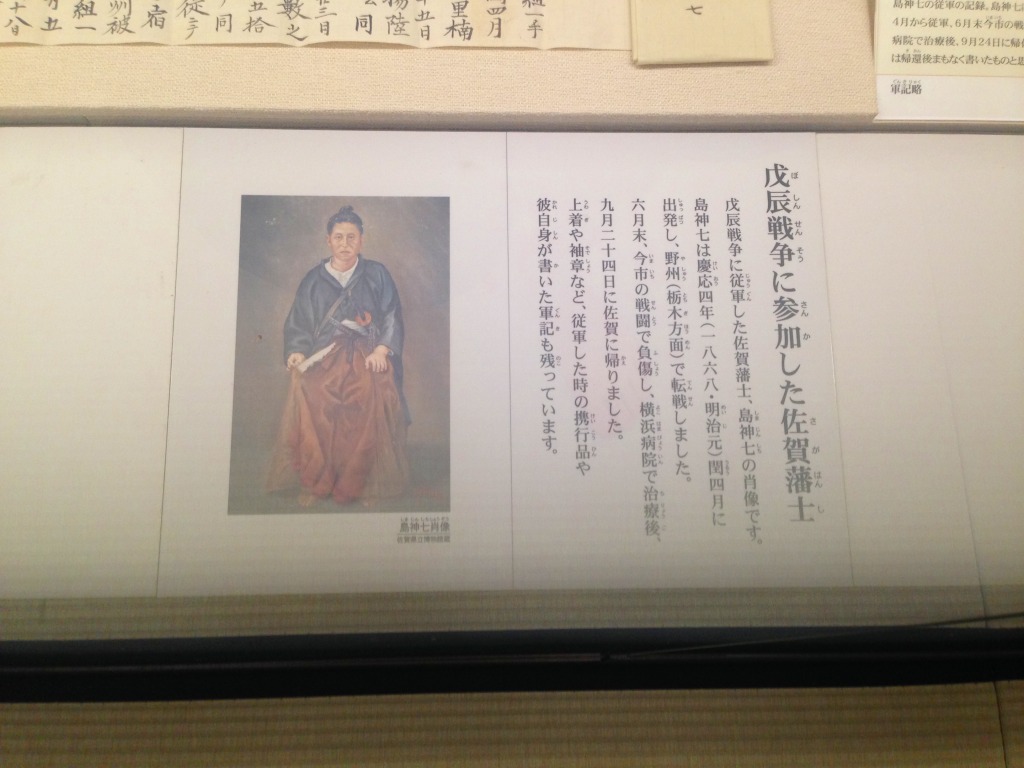 戊辰戦争に参加した佐賀藩士
戊辰戦争に従軍した佐賀藩士、島神七の肖像です。
島神七は慶応四年(一八六八・明治元)閏四月に
出発し、野州(栃木方面)で転戦しました。
六月末、今市の戦闘で負傷し、横浜病院で治療後、
九月二十四日に佐賀に帰りました。
上着や袖章など、従軍した時の携行品や
彼自身が書いた軍記も残っています。
島神七肖像
佐賀県立博物館蔵
島神七の従軍の記録。島神七は
4月から従軍。6月末今市の戦
病院で治療後、9月24日に帰
は帰還後まもなく書いたものと思
軍記略
七